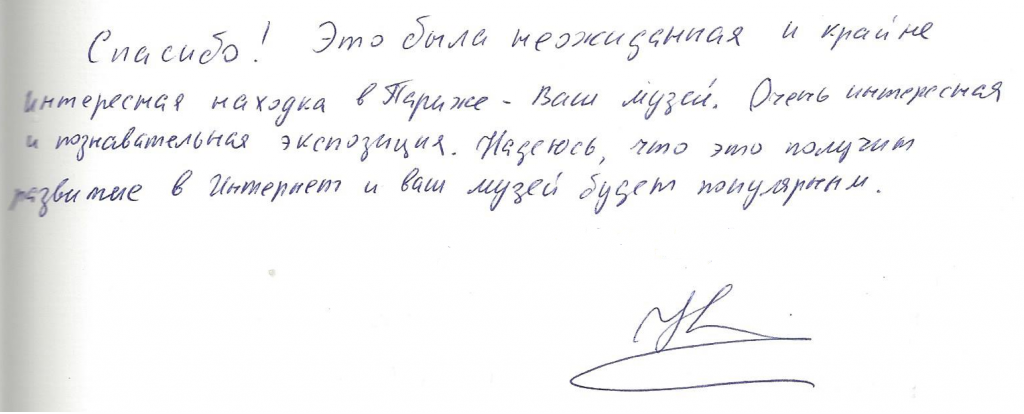 Спасибо! Это была неожиданная и крайне
интересная находка в Париже - Ваш музей. Очень интересная
и познавательная экспозиция. Надеюсь, что это получит
развитие в Интернет и ваш музей будет популярным.